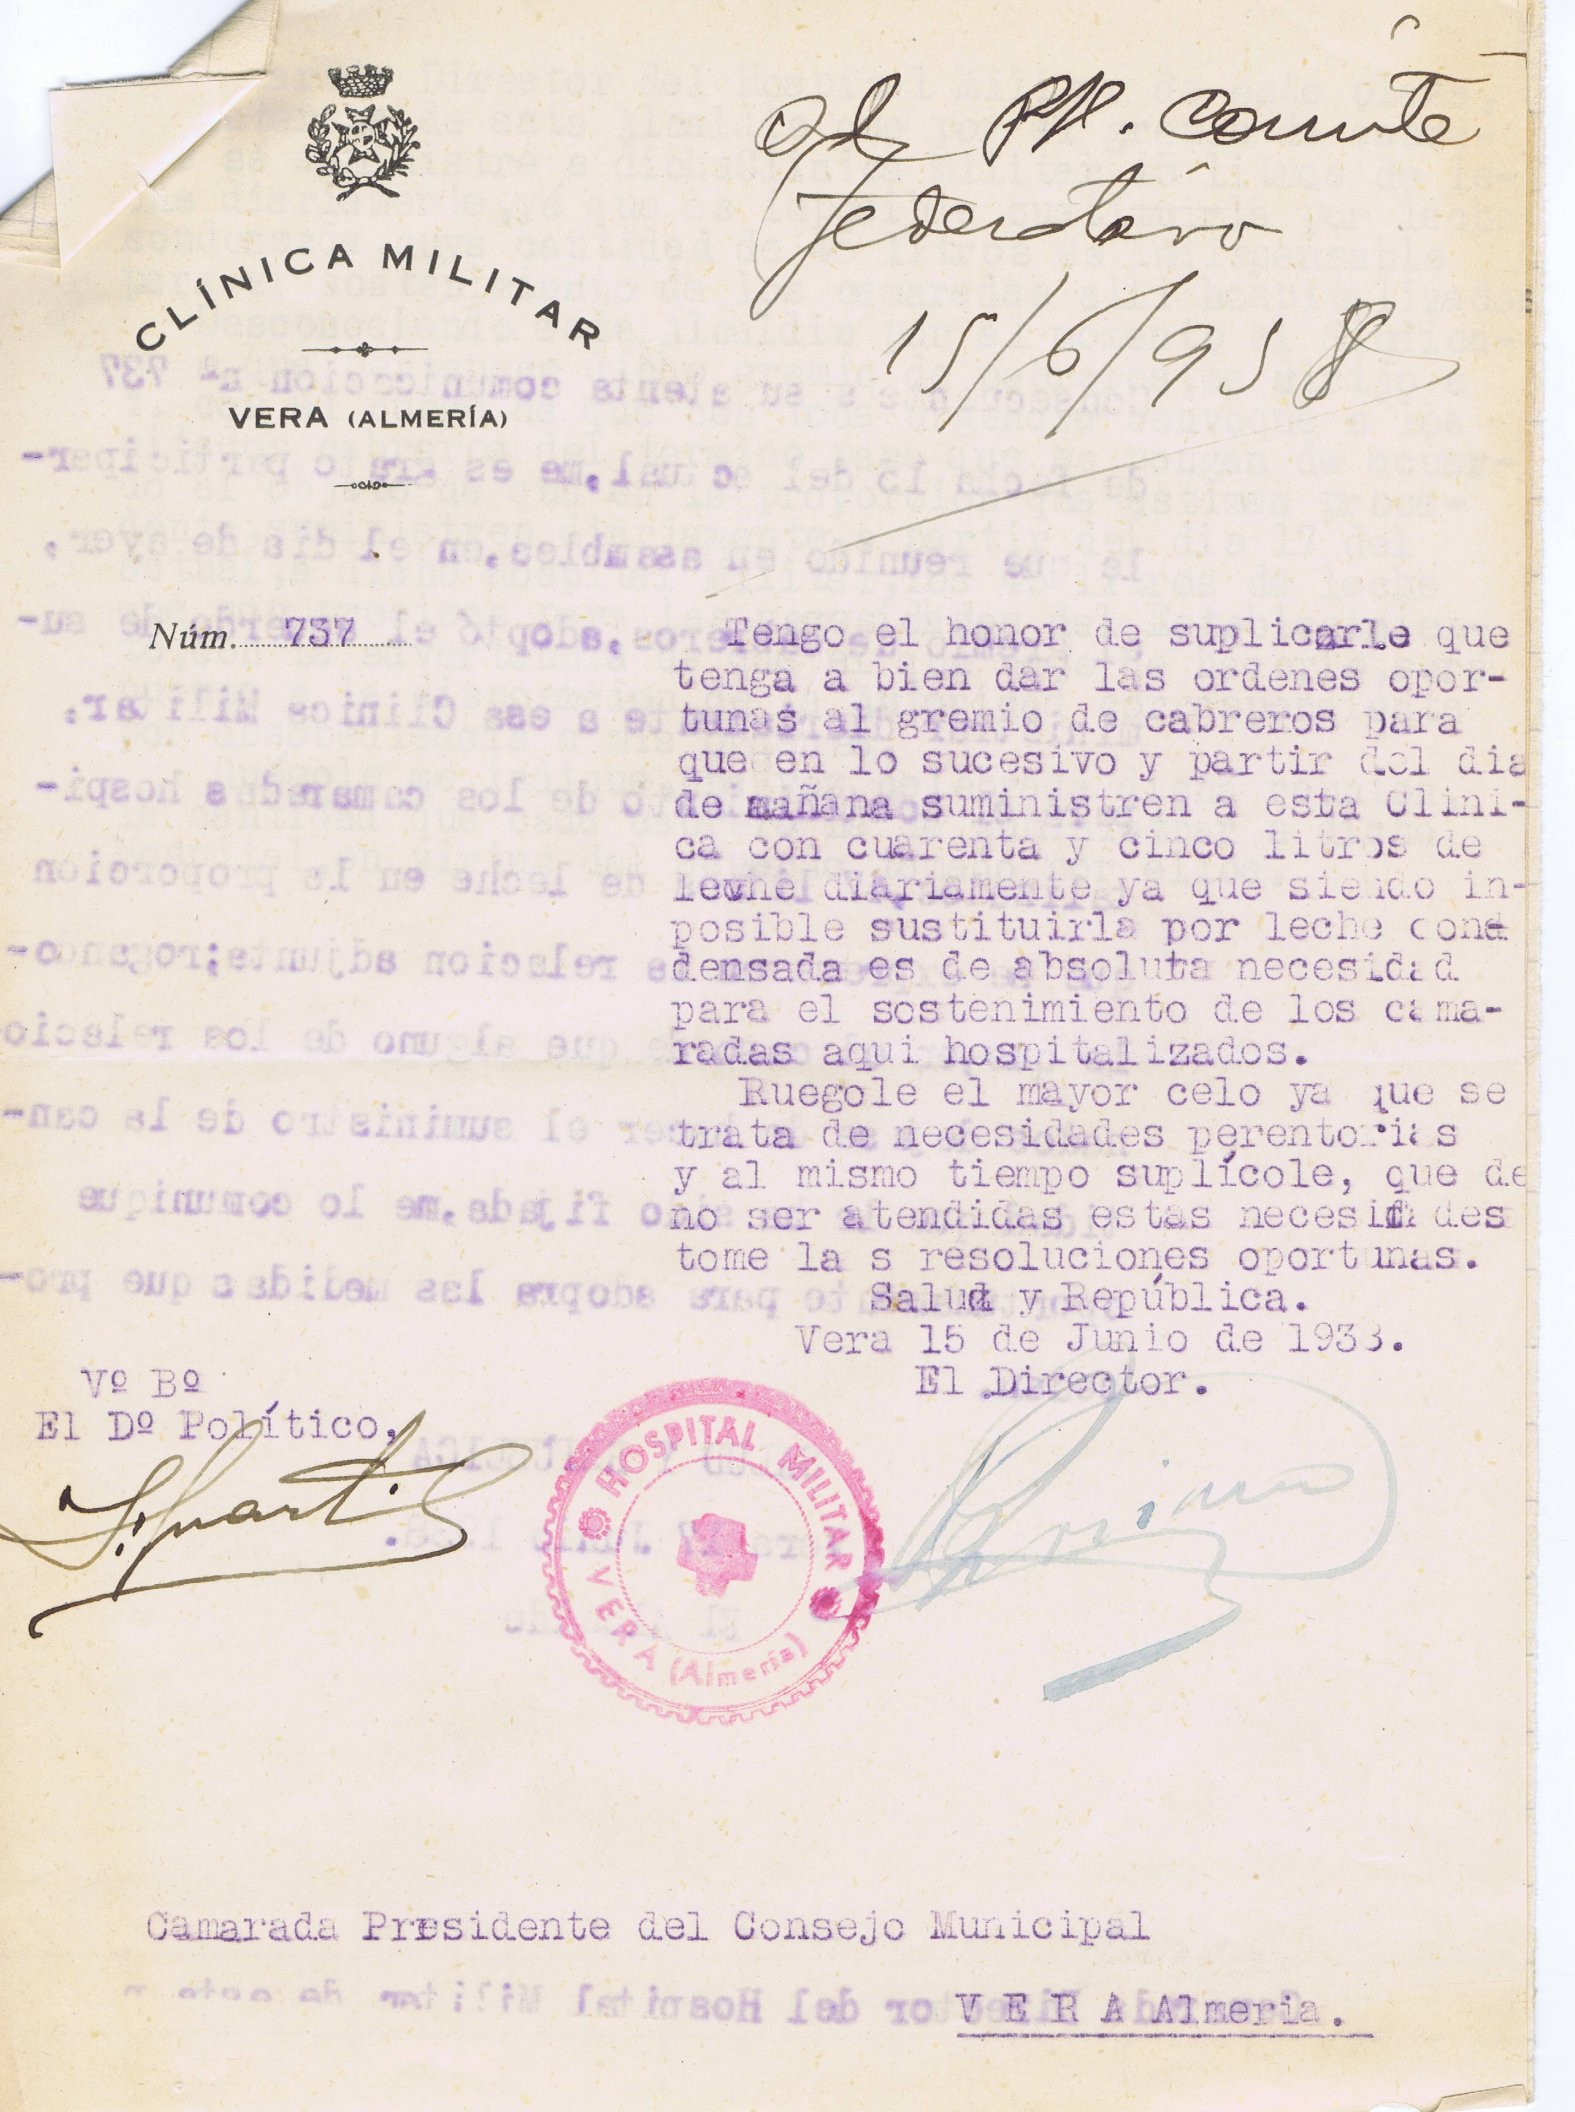 CLÍNICA MILITAR
VERA (ALMERÍA)
al Comité
15/6/938
Núm. 737
Tengo el honor de suplicarle que
tenga a bien dar las ordenes opor-
tunas al gremio de cabreros para
que en lo sucesivo y partir del dia
de mañana suministren a esta Clini-
ca con cuarenta y cinco litros de
leche diariamente ya que siendo in-
posible sustituirla por leche cond
densada es de absoluta necesidad
para el sostenimiento de los cama-
radas aqui hospitalizados.
Ruegole el mayor celo ya que se
trata de necesidades perentorias
y al mismo tiempo suplícole, que de
no ser atendidas estas necesidades
tome la s resoluciones oportunas.
Salud y República.
Vera 15 de Junio de 1938.
El Director.
Vº Bº
El Dº Político,
HOSPITAL MILITAR
VERA (Almería)
Camarada Presidente del Consejo Municipal
V E R A Almeria.